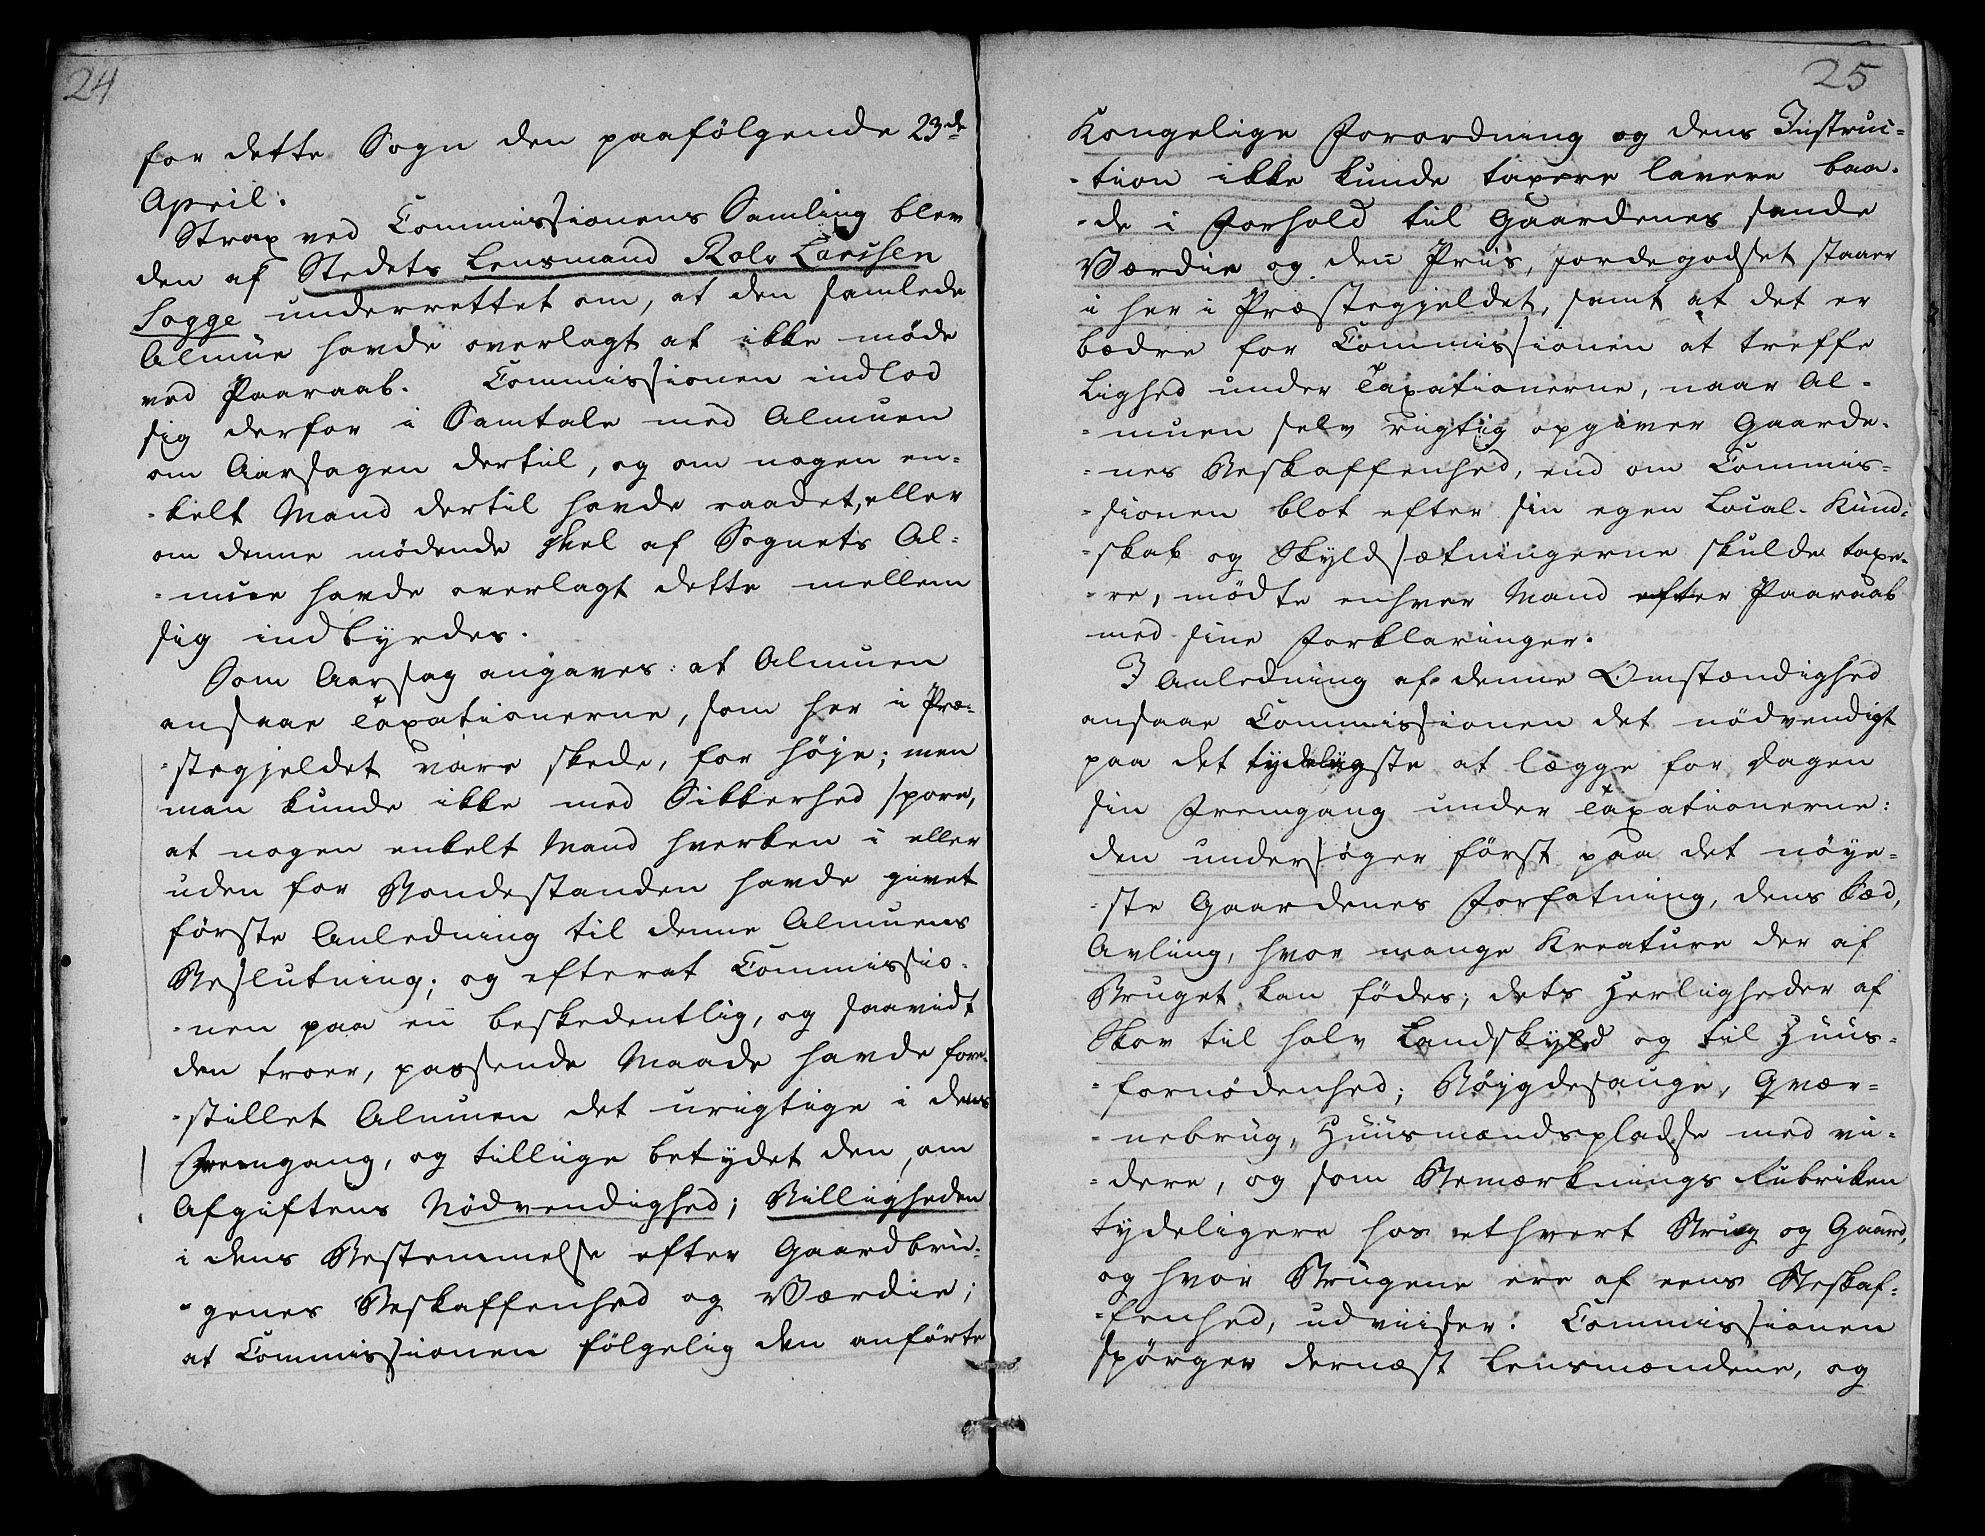 24
for dette Sogn den paafölgende 23de
April.
Strax ved Commissionens Samling blev
den af Stedets Lensmand Rolv Larssen
Sogge underrettet om, at den samlede
Almue havde overlagt at ikke møde
ved Paaraab. Commissionen indlod
sig derfor i Samtale med Almuen
om Aarsagen dertil, og om nogen en-
-kelt Mand dertil havde raadet, eller
om denne mødende Deel af Sognets Al-
-mue havde overlagt dette mellem
sig indbyrdes.
Som Aarsag angaves: at Almuen
ansaae Taxationerne, som her i Præ-
-stegjeldet vare skede, for høje; men
man kunde ikke med Sikkerhed spore,
at nogen enkelt Mand hverken i eller
uden for Bondestanden havde givet
förste Anledning til denne Almuens
Beslutning; og efterat Commissio-
-nen paa en beskedentlig, og saavidt
den troer, passende Maade havde fore-
-stillet Almuen det urigtige i dens
Fremgang, og tillige betydet den, om
Afgiftens Nödvendighed; Billigheden
i dens Bestemmelse efter Gaardbru-
-genes Beskaffenhed og Værdie;
at Commissionen fölgelig den anförte
25
Kongelige Forordning og dens Instruc-
-tion ikke kunde taxere lavere baa-
-de i Forhold til Gaardenes sande
Værdie og den Priis, Jordegodset staaer
i her i Præstegjeldet, samt at det er
bedre for Commissionen at treffe
Lighed under Taxationerne, naar Al-
-muen selv rigtig opgiver Gaarde-
-nes Beskaffenhed, end om Commis-
-sionen blot efter sin egen Local-Kund-
-skab og Skyldsætningerne skulde taxe-
-re, mödte enhver Mand efter Paaraab
med sine Forklaringer.
I Anledning af denne Omstændighed
ansaae Commissionen det nödvendigt
paa det tydeligste at lægge for Dagen
sin Fremgang under Taxationerne:
den undersöger först paa det nöye-
-ste Gaardenes Forfatning, dens Sæd,
Avling, hvor mange Kreature der af
Bruget kan födes; dets Herligheder af
Skov til halv Landskyld og til Huus-
-fornödenhed; Böygdesauge, Qvær-
-nebrug, Huusmændspladse med vi-
-dere, og som Bemærknings Rubriken
tydeligere hos ethvert Brug og Gaard,
og hvor Brugene ere af eens Beskaf-
-fenhed, udviiser. Commissionen
spörger dernæst Lensmændene, og